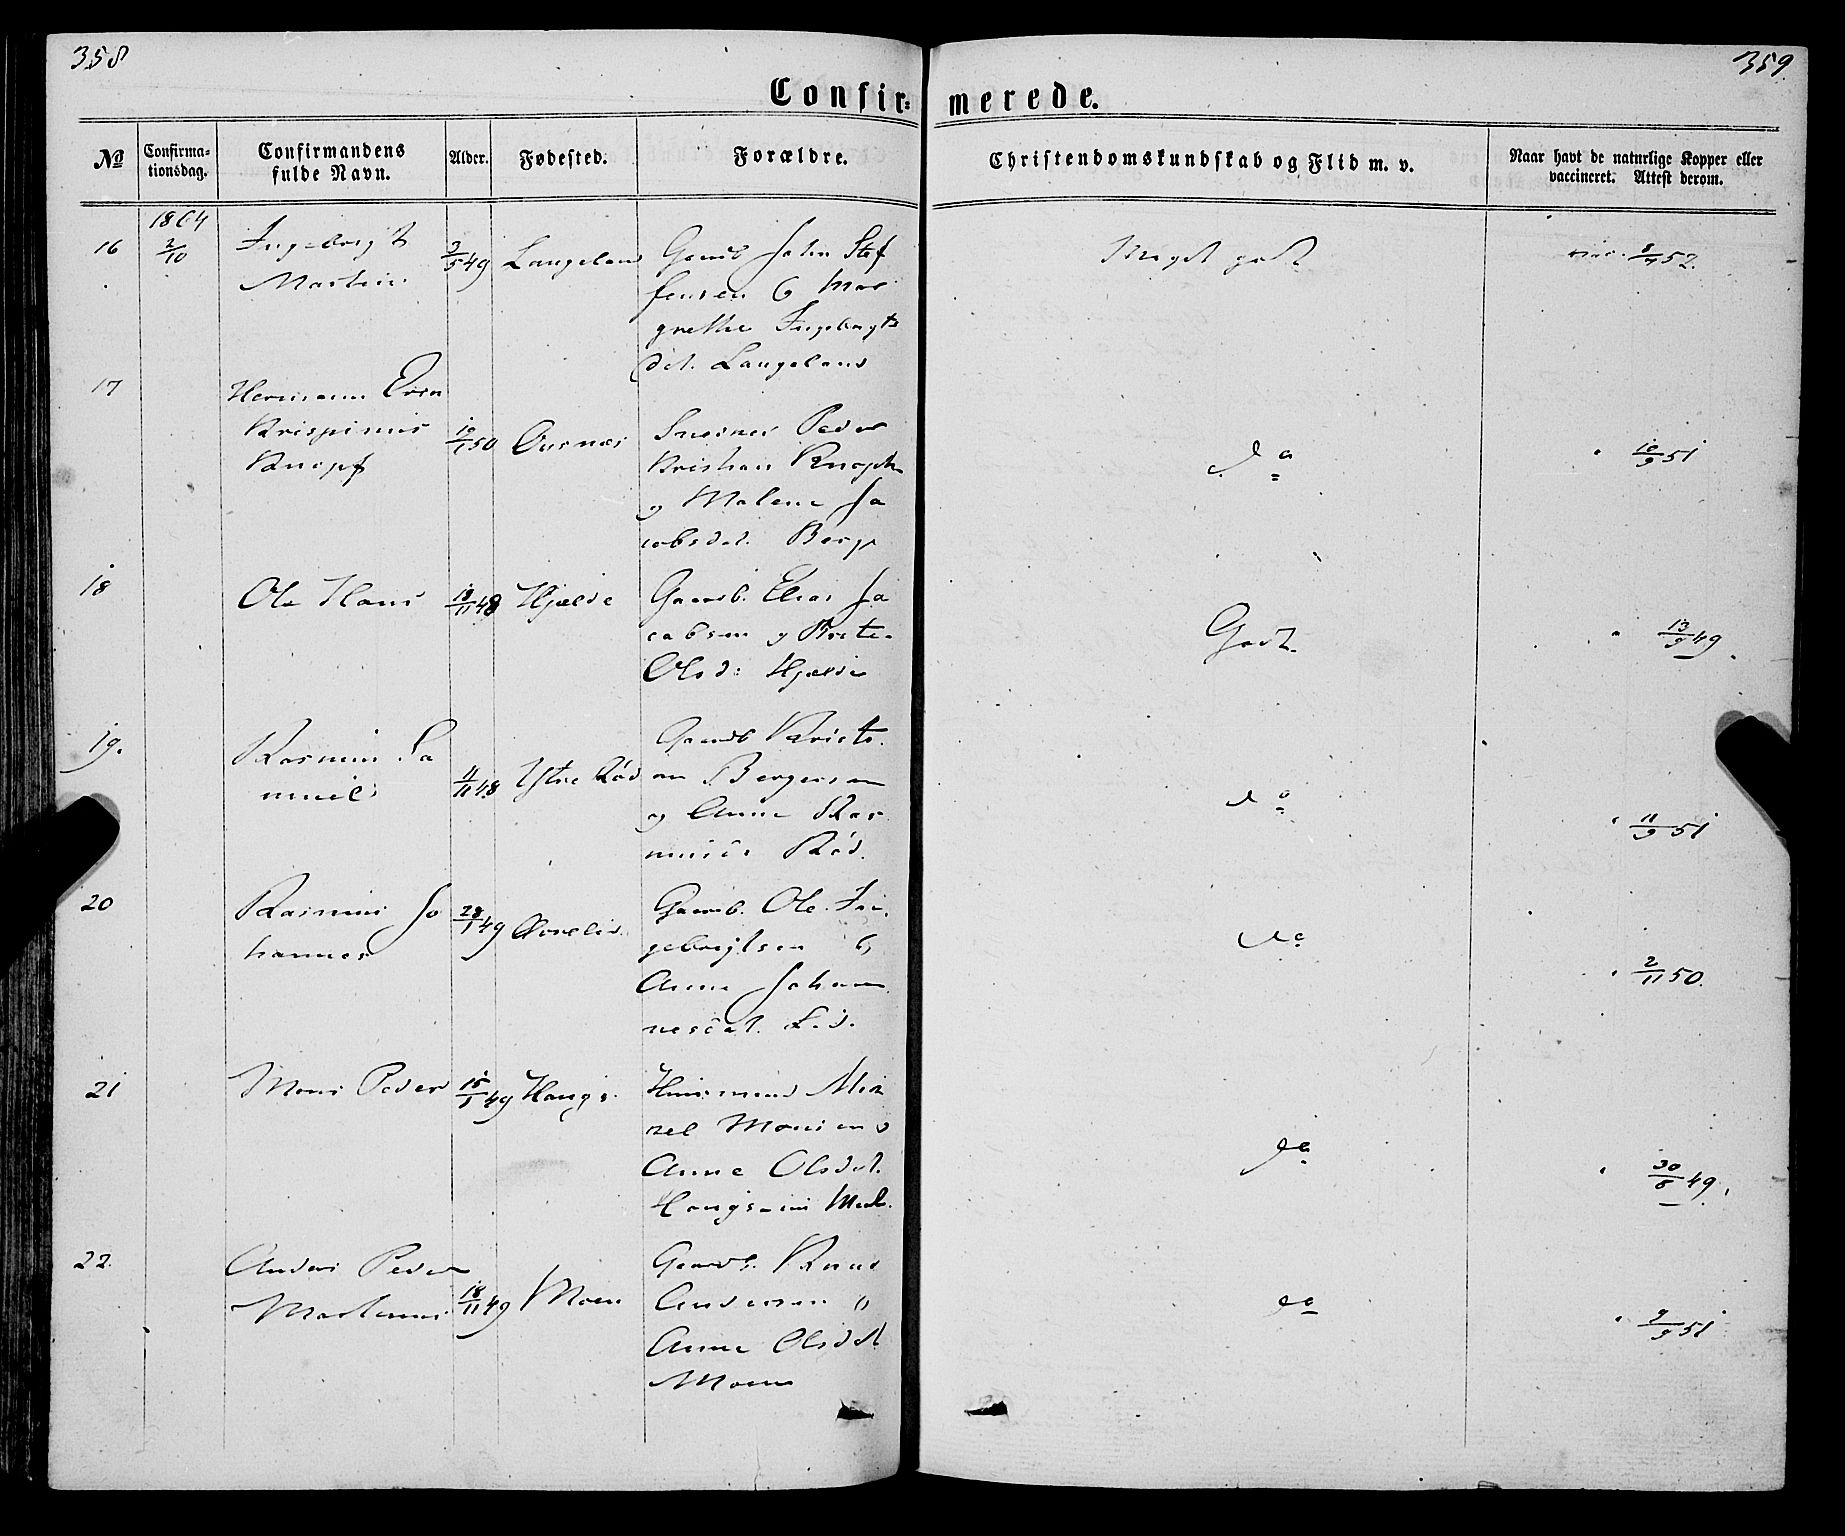 358
359.
Confir=
merede.
No
Confirma-
tionsdag.
Confirmandens
fulde Navn.
Alder.
Fødested.
Forældre.
Christendomskundskab og Flid m. v.
Naar havt de naturlige Kopper eller
vaccineret. Attest derom.
1864
16
2/10
Ingebrigt
Martin
3/5 49
Langeland
Gaardb John Stef
fensen og Mar
grethe Ingebrigts
dat. Langeland
Meget godt
vac. 8/7 52.
17
Hermann
Krispinus
Knopf
10/1 50
Peder
Kristian
og Malene Ja
cobsdat. Berge
do
" 10/9 51
18
Ole Hans
18/11 48
Hjelde
Gaardb. Elias Ja
cobsen og
Olsd: Hjelde
Godt.
" 13/9 49
19.
Rasmus Sa
muel
11/11 48
Ytre Rød
Gaardb Kristi
an Bergersen
og Anne Ras
musd: Rød.
do
" 11/9 51
20
Rasmus Jo
hannes
28/1 49
Gaardb. Ole In
gebrigtsen og
Anne Johan
nesdat. Lid.
do
" 2/11 50.
21
Mons Peder
15/1 49
Haugs
Huusmand Mik
kel Monsen og
Anne Olsdat.
do
" 30/8 49.
22.
Anders Peder
Martinus
18/11 49
Moen
Gaardb. Knud
Andersen og
Anne Olsdat
Moen
do
" 9/9 51